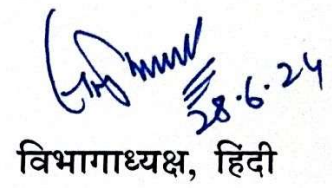 28.6.24
विभागाध्यक्ष, हिंदी